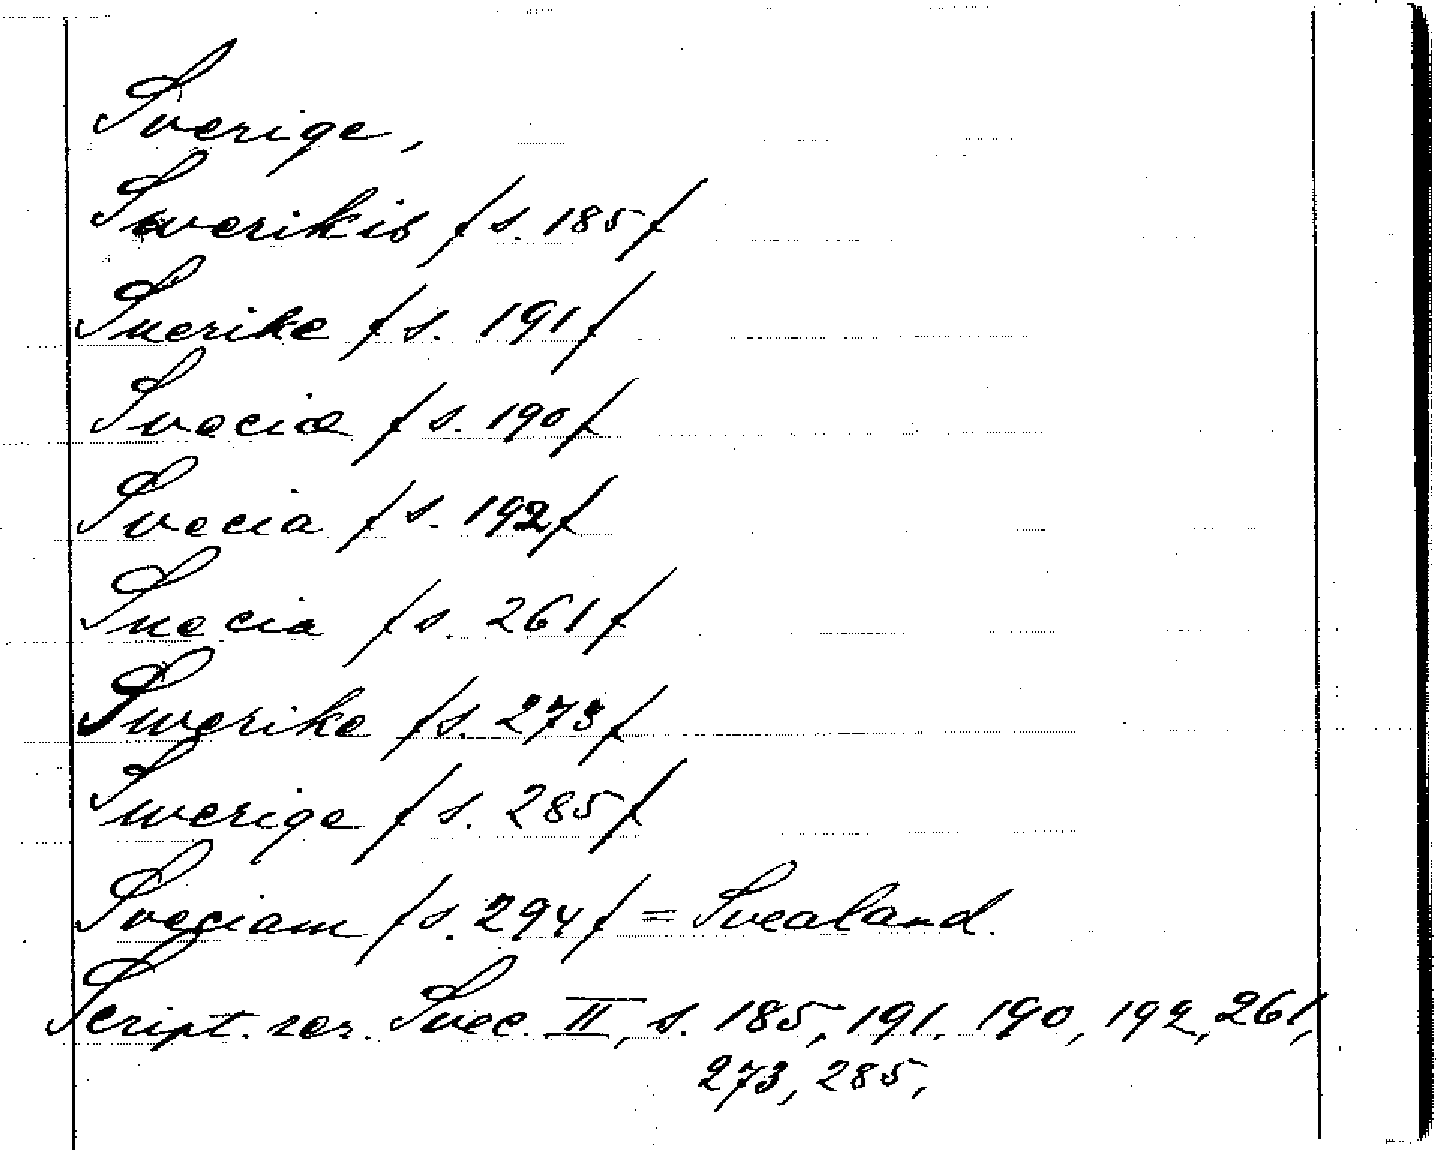 Sverige,
Swerikis /s. 185/
Suerike /s. 191/
Sveciæ /s. 190/
Svecia /s. 192/
Suecia /s. 261/
Swerike /s. 273/
Swerige /s. 285/
Sveciam /s. 294/ = Svealand.
Script. rer. Svec. II, s. 185, 191. 190, 192, 261,
273, 285,